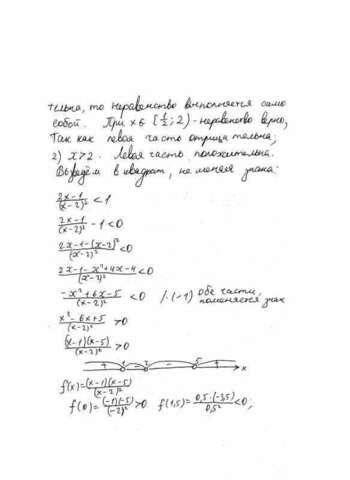 тельна, то неравенство выполняется само
собой. При x ∈ [½; 2) - неравенство верно,
Так как левая часть отрицательна;
2) x > 2. Левая часть положительна.
Возведём в квадрат, не меняя знака:
(2x-1)/(x-2)² < 1
(2x-1)/(x-2)² - 1 < 0
(2x-1-(x-2)²)/(x-2)² < 0
(2x-1-x²+4x-4)/(x-2)² < 0
(-x²+6x-5)/(x-2)² < 0 /·(-1) обе части, поменяется знак
(x²-6x+5)/(x-2)² > 0
(x-1)(x-5)/(x-2)² > 0
+ 1 - 2 - 5 + x
f(x) = (x-1)(x-5)/(x-2)²
f(0) = (-1)(-5)/(-2)² > 0 f(1,5) = 0,5·(-3,5)/0,5² < 0;